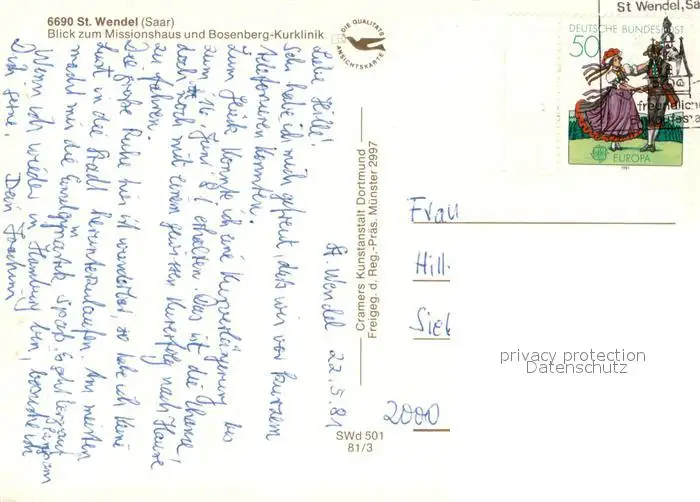 6690 St. Wendel (Saar)
Blick zum Missionshaus und Bosenberg-Kurklinik
DIE QUALITÄTS
ANSICHTSKARTE
St. Wendel 22.5.81
Liebe Hilla!
Sehr habe ich mich gefreut, daß wir vor kurzem
telefonieren konnten.
Zum Glück konnte ich eine Kurverlängerung bis
zum 16. Juni 81 erhalten. Das ist die Chance,
doch noch mit einem gewissen Kurerfolg nach Hause
zu fahren.
Die große Ruhe hier ist wunderbar, so habe ich keine
Lust in die Stadt herunterzulaufen. Am meisten
macht mir die Spaß
Wenn ich wieder in Hamburg bin, besuche ich
Dich gerne! Dein Joachim
Cramers Kunstanstalt Dortmund
Freigeg. d. Reg.-Präs. Münster 2997
SWd 501
81/3
St Wendel, Sa
DEUTSCHE BUNDESPOST
50
EUROPA
1981
freundliche
Frau
Hill
Sie
2000
privacy protection
Datenschutz